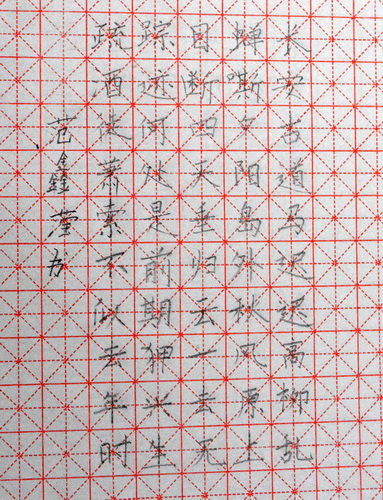 长安古道马迟迟高柳乱
蝉嘶夕阳岛外秋风原上
目断四天垂归云一去无
踪迹何处是前期狎兴生
疏酒徒萧索不似去年时
范鑫莹